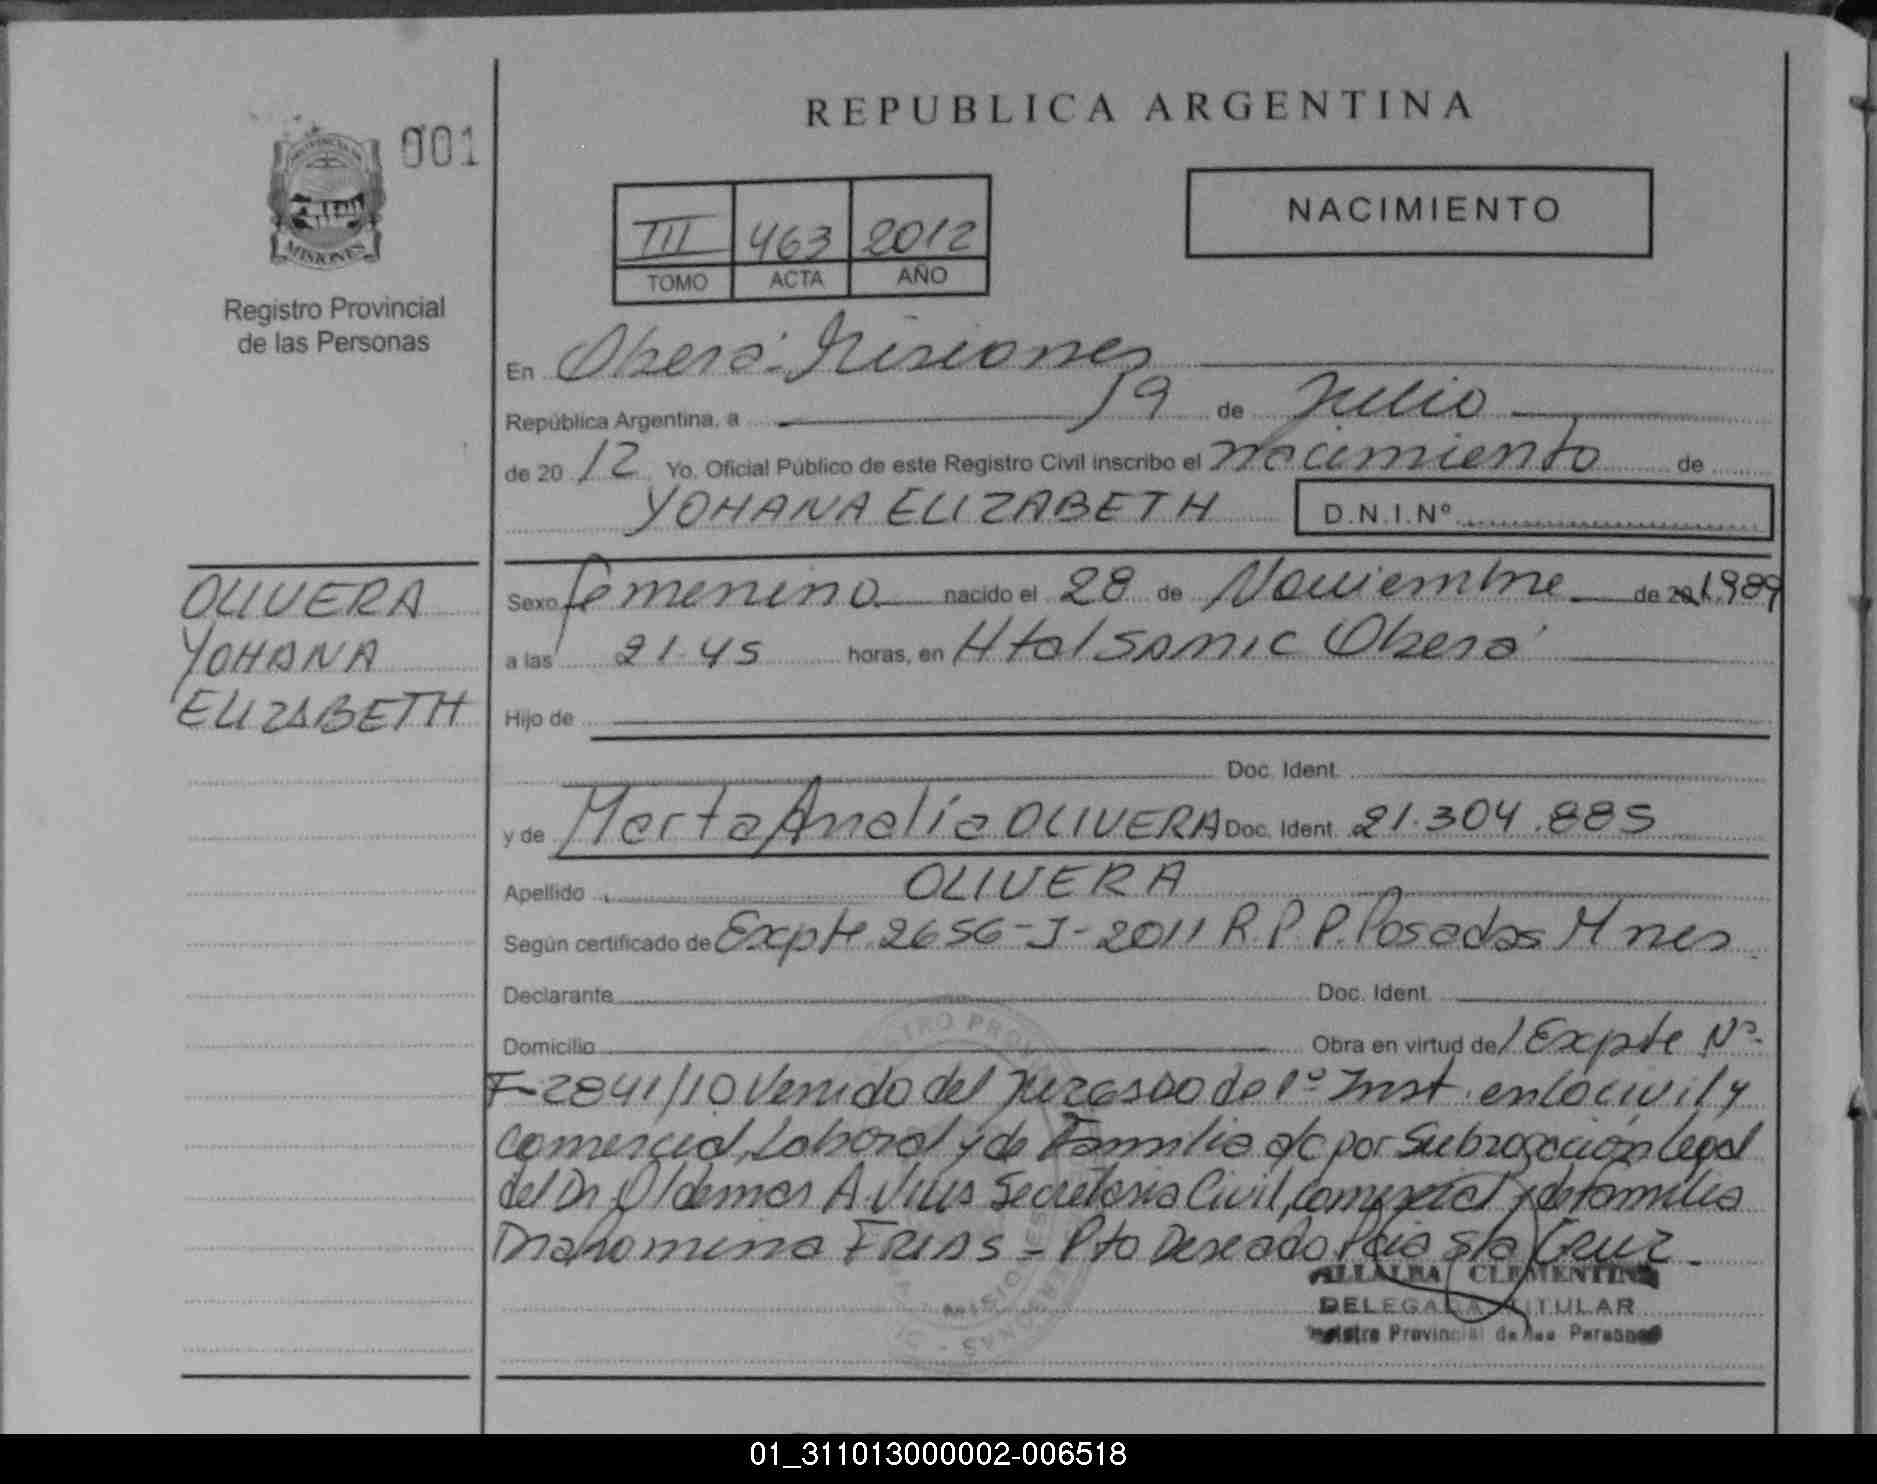 REPUBLICA ARGENTINA
001
MISIONES
Registro Provincial
de las Personas
III 463 2012
TOMO ACTA AÑO
NACIMIENTO
En Oberá - Misiones
República Argentina, a 19 de Julio
de 20 12 Yo, Oficial Público de este Registro Civil inscribo el nacimiento de
YOHANA ELIZABETH D.N.I.Nº
OLIVERA
YOHANA
ELIZABETH
Sexo femenino nacido el 28 de Noviembre de 20 1989
a las 21.45 horas, en Htal SAMIC Oberá
Hijo de
Doc. Ident.
y de Marta Analía OLIVERA Doc. Ident. 21.304.885
Apellido OLIVERA
Según certificado de Expte 2656-J-2011 R.P.P. Posadas Mnes
Declarante Doc. Ident.
Domicilio Obra en virtud de/ Expte Nº
F-2841/10 Venido del Juzgado de 1º Inst. en lo civil y
comercial, Laboral y de Familia a/c por Subrogación legal
del Dr. Oldemar A. Secretaria Civil, comercial y de familia
FRIAS - Pto Deseado Pcia Sta Cruz -
CLEMENTINA
DELEGADA TITULAR
Registro Provincial de las Personas
01_311013000002-006518